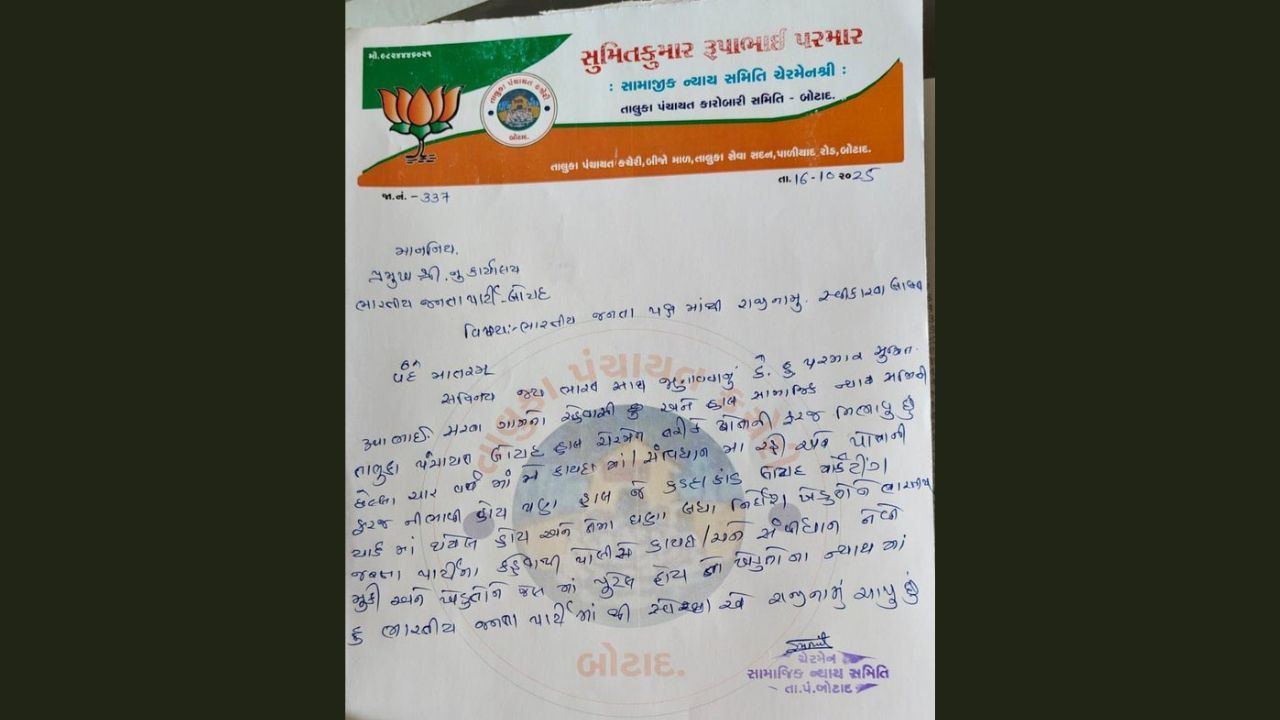 મો.૯૮૨૪૪૪૧૦૨૧
સુમિતકુમાર રૂપાભાઈ પરમાર
: સામાજીક ન્યાય સમિતિ ચેરમેનશ્રી :
તાલુકા પંચાયત કારોબારી સમિતિ - બોટાદ.
તાલુકા પંચાયત કચેરી
બોટાદ.
તાલુકા પંચાયત કચેરી,બીજો માળ,તાલુકા સેવા સદન,પાળીયાદ રોડ,બોટાદ.
જા.નં. - 337
તા.16-10 ૨૦25
માનનિય.
પ્રમુખ શ્રી.નુ કાર્યાલય
ભારતીય જનતા પાર્ટી-બોટાદ
વિષય:-ભારતીય જનતા પક્ષ માંથી રાજીનામુ. સ્વીકારવા બાબત
વંદે માતરમ
સવિનય જય ભારત સાથ જણાવવાનું કે. હુ પરમાર સુમિત.
રૂપાભાઈ. સરવા ગામનો રહેવાસી છુ અને હાલ સામાજિક ન્યાય સમિતી
તાલુકા પંચાયત બોટાદ હાલ ચેરમેન તરીકે પોતાની ફરજ નિભાવુ છું
છેલ્લા ચાર વર્ષ માં મે કાયદા માં/સંવિધાન મા રહી અને પોતાની
ફરજ નીભાવી હોય પણ હાલ જે કડદાકાંડ બોટાદ માર્કેટીંગ
યાર્ડ માં થયેલ હોય અને તેમા ઘણા બધા નિર્દોશ ખેડુતોને ભારતીય
જનતા પાર્ટીના કહેવાથી પોલીસે કાયદા/અને સંવીધાન નેવે
મુકી અને ખેડુતોને જેલ માં પુરેલ હોય તો ખેડુતોના ન્યાય માં
હુ ભારતીય જનતા પાર્ટી માં થી સ્વેચ્છા એ રાજીનામું આપુ છું
ચેરમેન
સામાજિક ન્યાય સમિતિ
તા.પં.બોટાદ
તાલુકા પંચાયત કચેરી
બોટાદ.